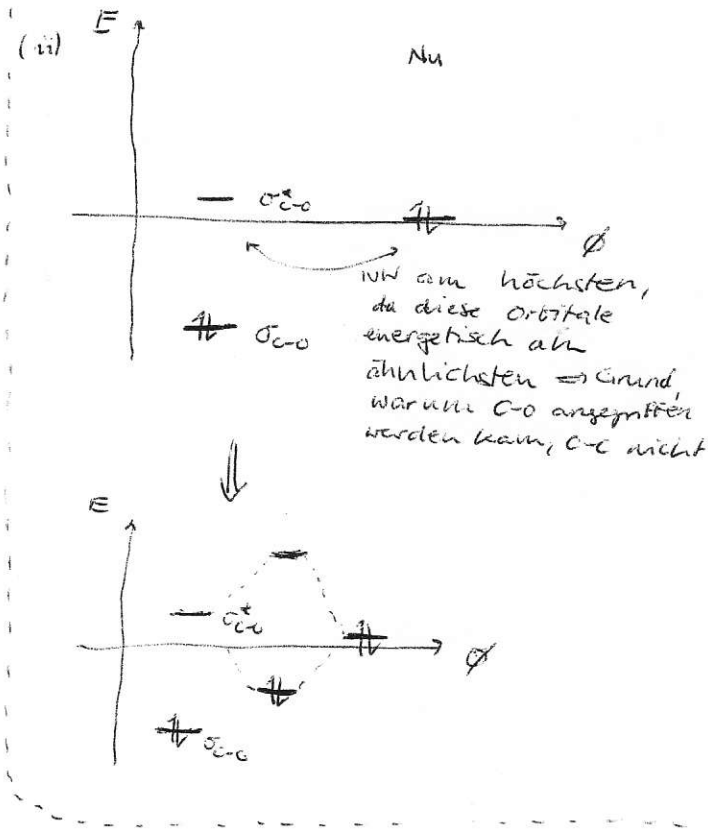 (ii) E
Nu
σ*C-O
ϕ
WW am höchsten,
da diese Orbitale
energetisch am
ähnlichsten ⇒ Grund,
warum C-O angegriffen
werden kann, C-C nicht
σC-O
E
σ*C-O
ϕ
σC-O